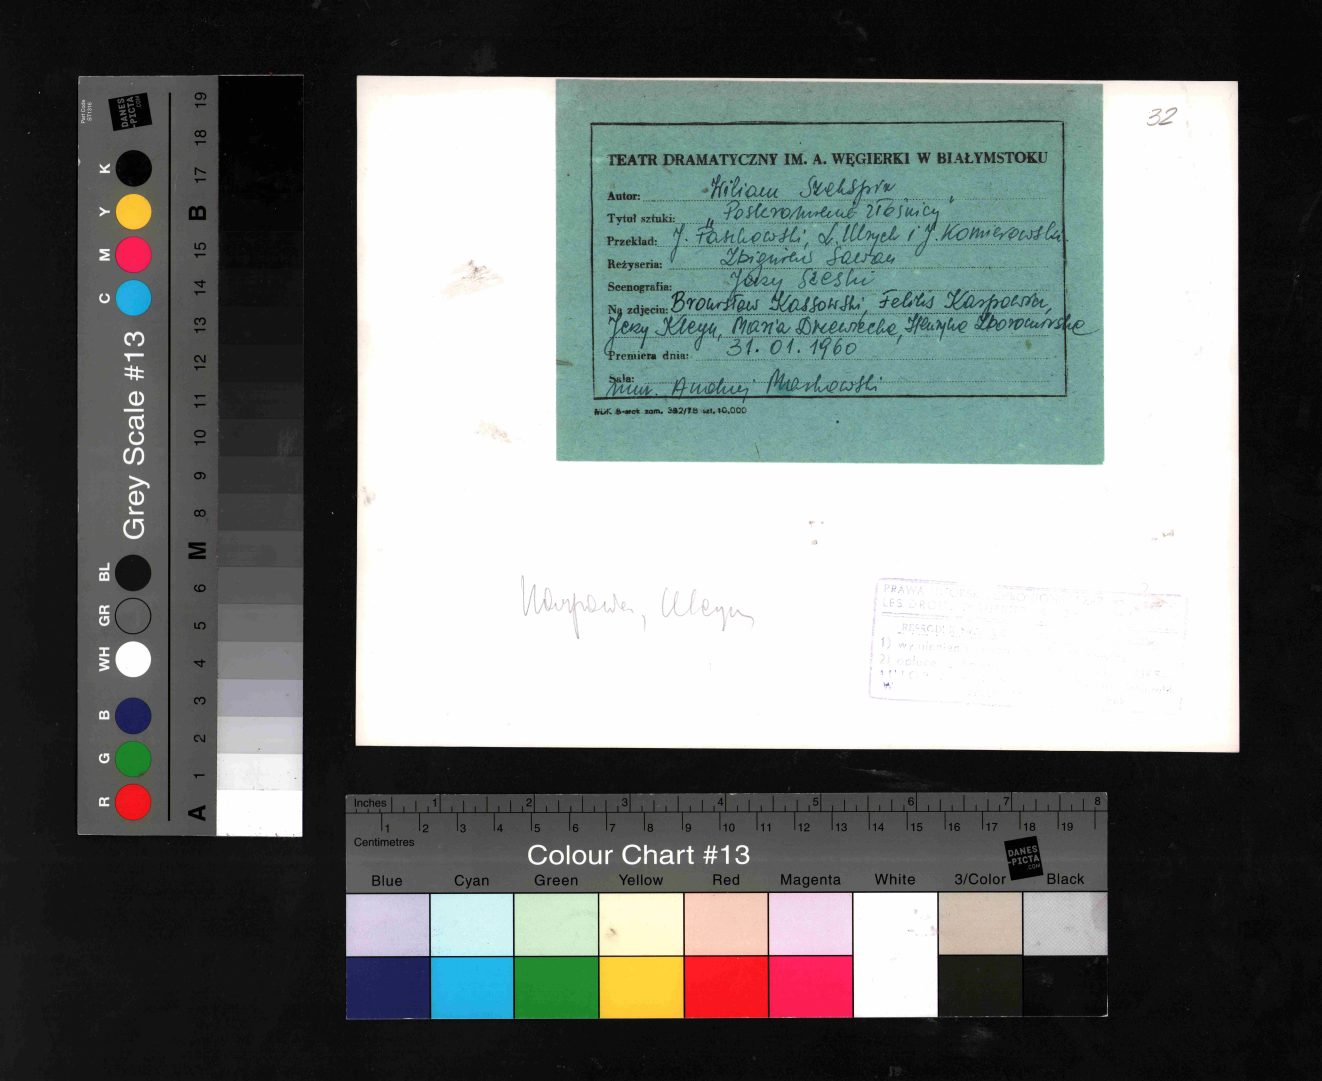 32
TEATR DRAMATYCZNY IM. A. WĘGIERKI W BIAŁYMSTOKU
Autor: Wiliam Szekspir
Tytuł sztuki: „Poskromienie złośnicy"
Przekład: J. Paszkowski, L. Ulrych i J. Komierowski
Reżyseria: Zbigniew Sawan
Scenografia: Jerzy Szeski
Na zdjęciu: Bronisław Kassowski, Feliks Karpowicz,
Jerzy Kleyn, Maria Drzewiecka, Henryka
Premiera dnia: 31. 01. 1960
Sala:
muz. Andrzej Markowski
zam. 392/78 szt. 10.000
Kleyn
PRAWA
LES DRO
1) wymienien
2)
Part Code
ST1316
DANES
-PICTA
.COM
Grey Scale #13
K Y M C BL GR WH B G R
19 18 17 B 15 14 13 12 11 10 9 8 M 6 5 4 3 2 1 A
Inches 1 2 3 4 5 6 7 8
1 2 3 4 5 6 7 8 9 10 11 12 13 14 15 16 17 18 19
Centimetres
Colour Chart #13
DANES
-PICTA
.COM
Blue Cyan Green Yellow Red Magenta White 3/Color Black